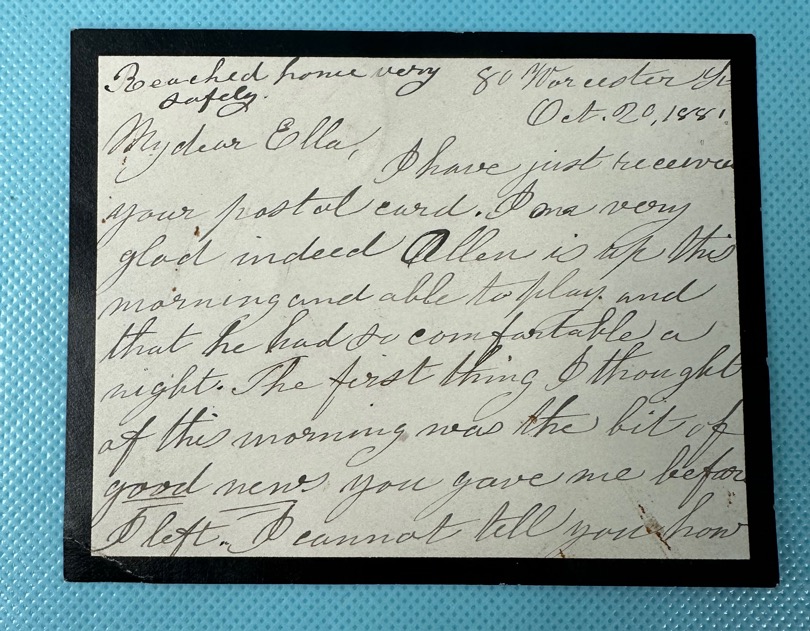 Reached home very
safely.
80 Worcester St.
Oct. 20, 1881
My dear Ella,
I have just receive
your postal card. I me very
glad indeed Allen is up this
morning and able to play and
that he had so comfortable a
night. The first thing I thought
of this morning was the bit of
good news you gave me before
I left. I cannot tell you how